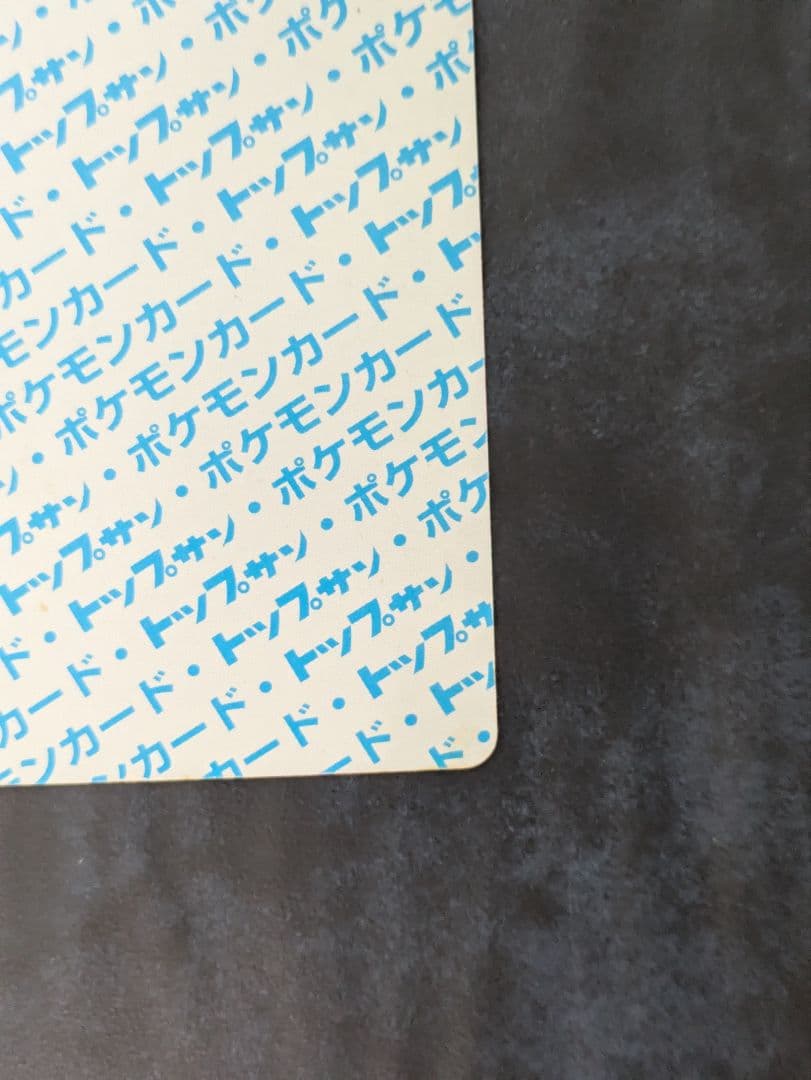 プサン・ポ
トップサン・ポケ
ド・トップサン・ポケ
カード・トップサン・ポケモ
モンカード・トップサン・ポ
ポケモンカード・トップサン
ン・ポケモンカード・トップ
プサン・ポケモンカード・トッ
トップサン・ポケモンカード
ド・トップサン・ポケモンカー
カード・トップサン・ポケモン
モンカード・トップサン・ポケ
ンカード・トップサン・
カード・トップサ
ード・トッ
ド・